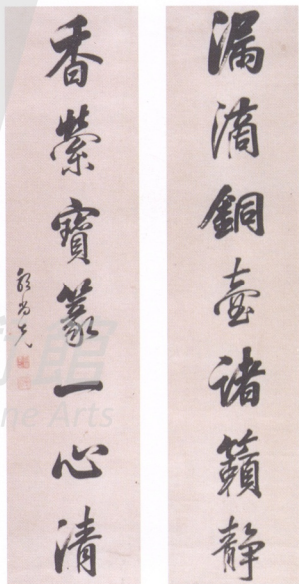 漏滴銅壺諸籟靜
香縈寶篆一心清
郭尚先
館
ne Arts